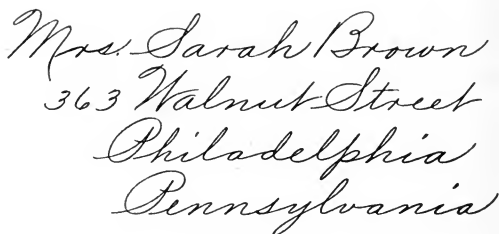 Mrs. Sarah Brown
363 Walnut Street
Philadelphia
Pennsylvania